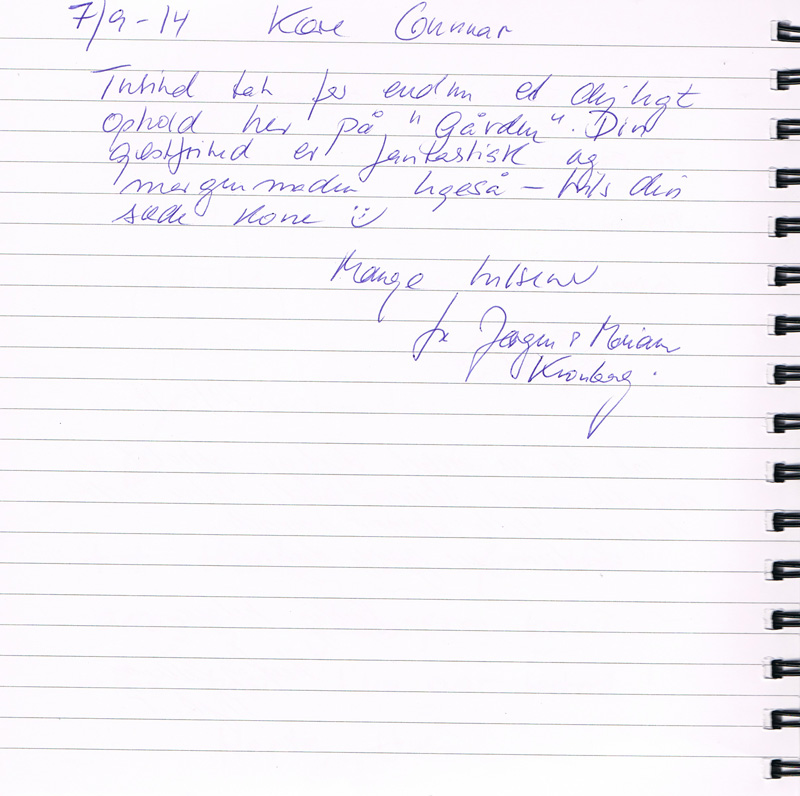 7/9-14 Kære Gunnar
Tusind tak for endnu et dejligt
ophold her på "Gården". Din
gæstfrihed er fantastisk og
morgenmaden ligeså - hils din
søde kone
Mange hilsener
fra Jørgen & Mariann
Kronborg.